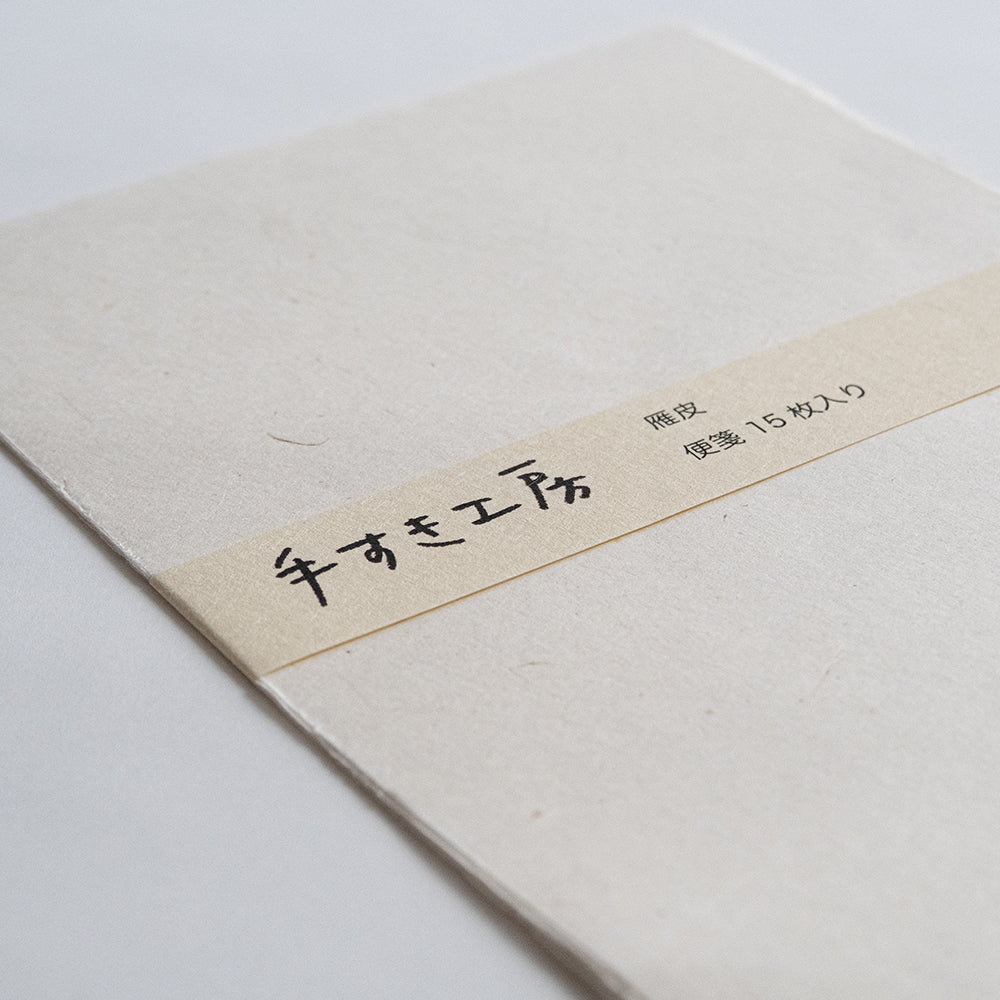 手すき工房
雁皮
便箋 15枚入り